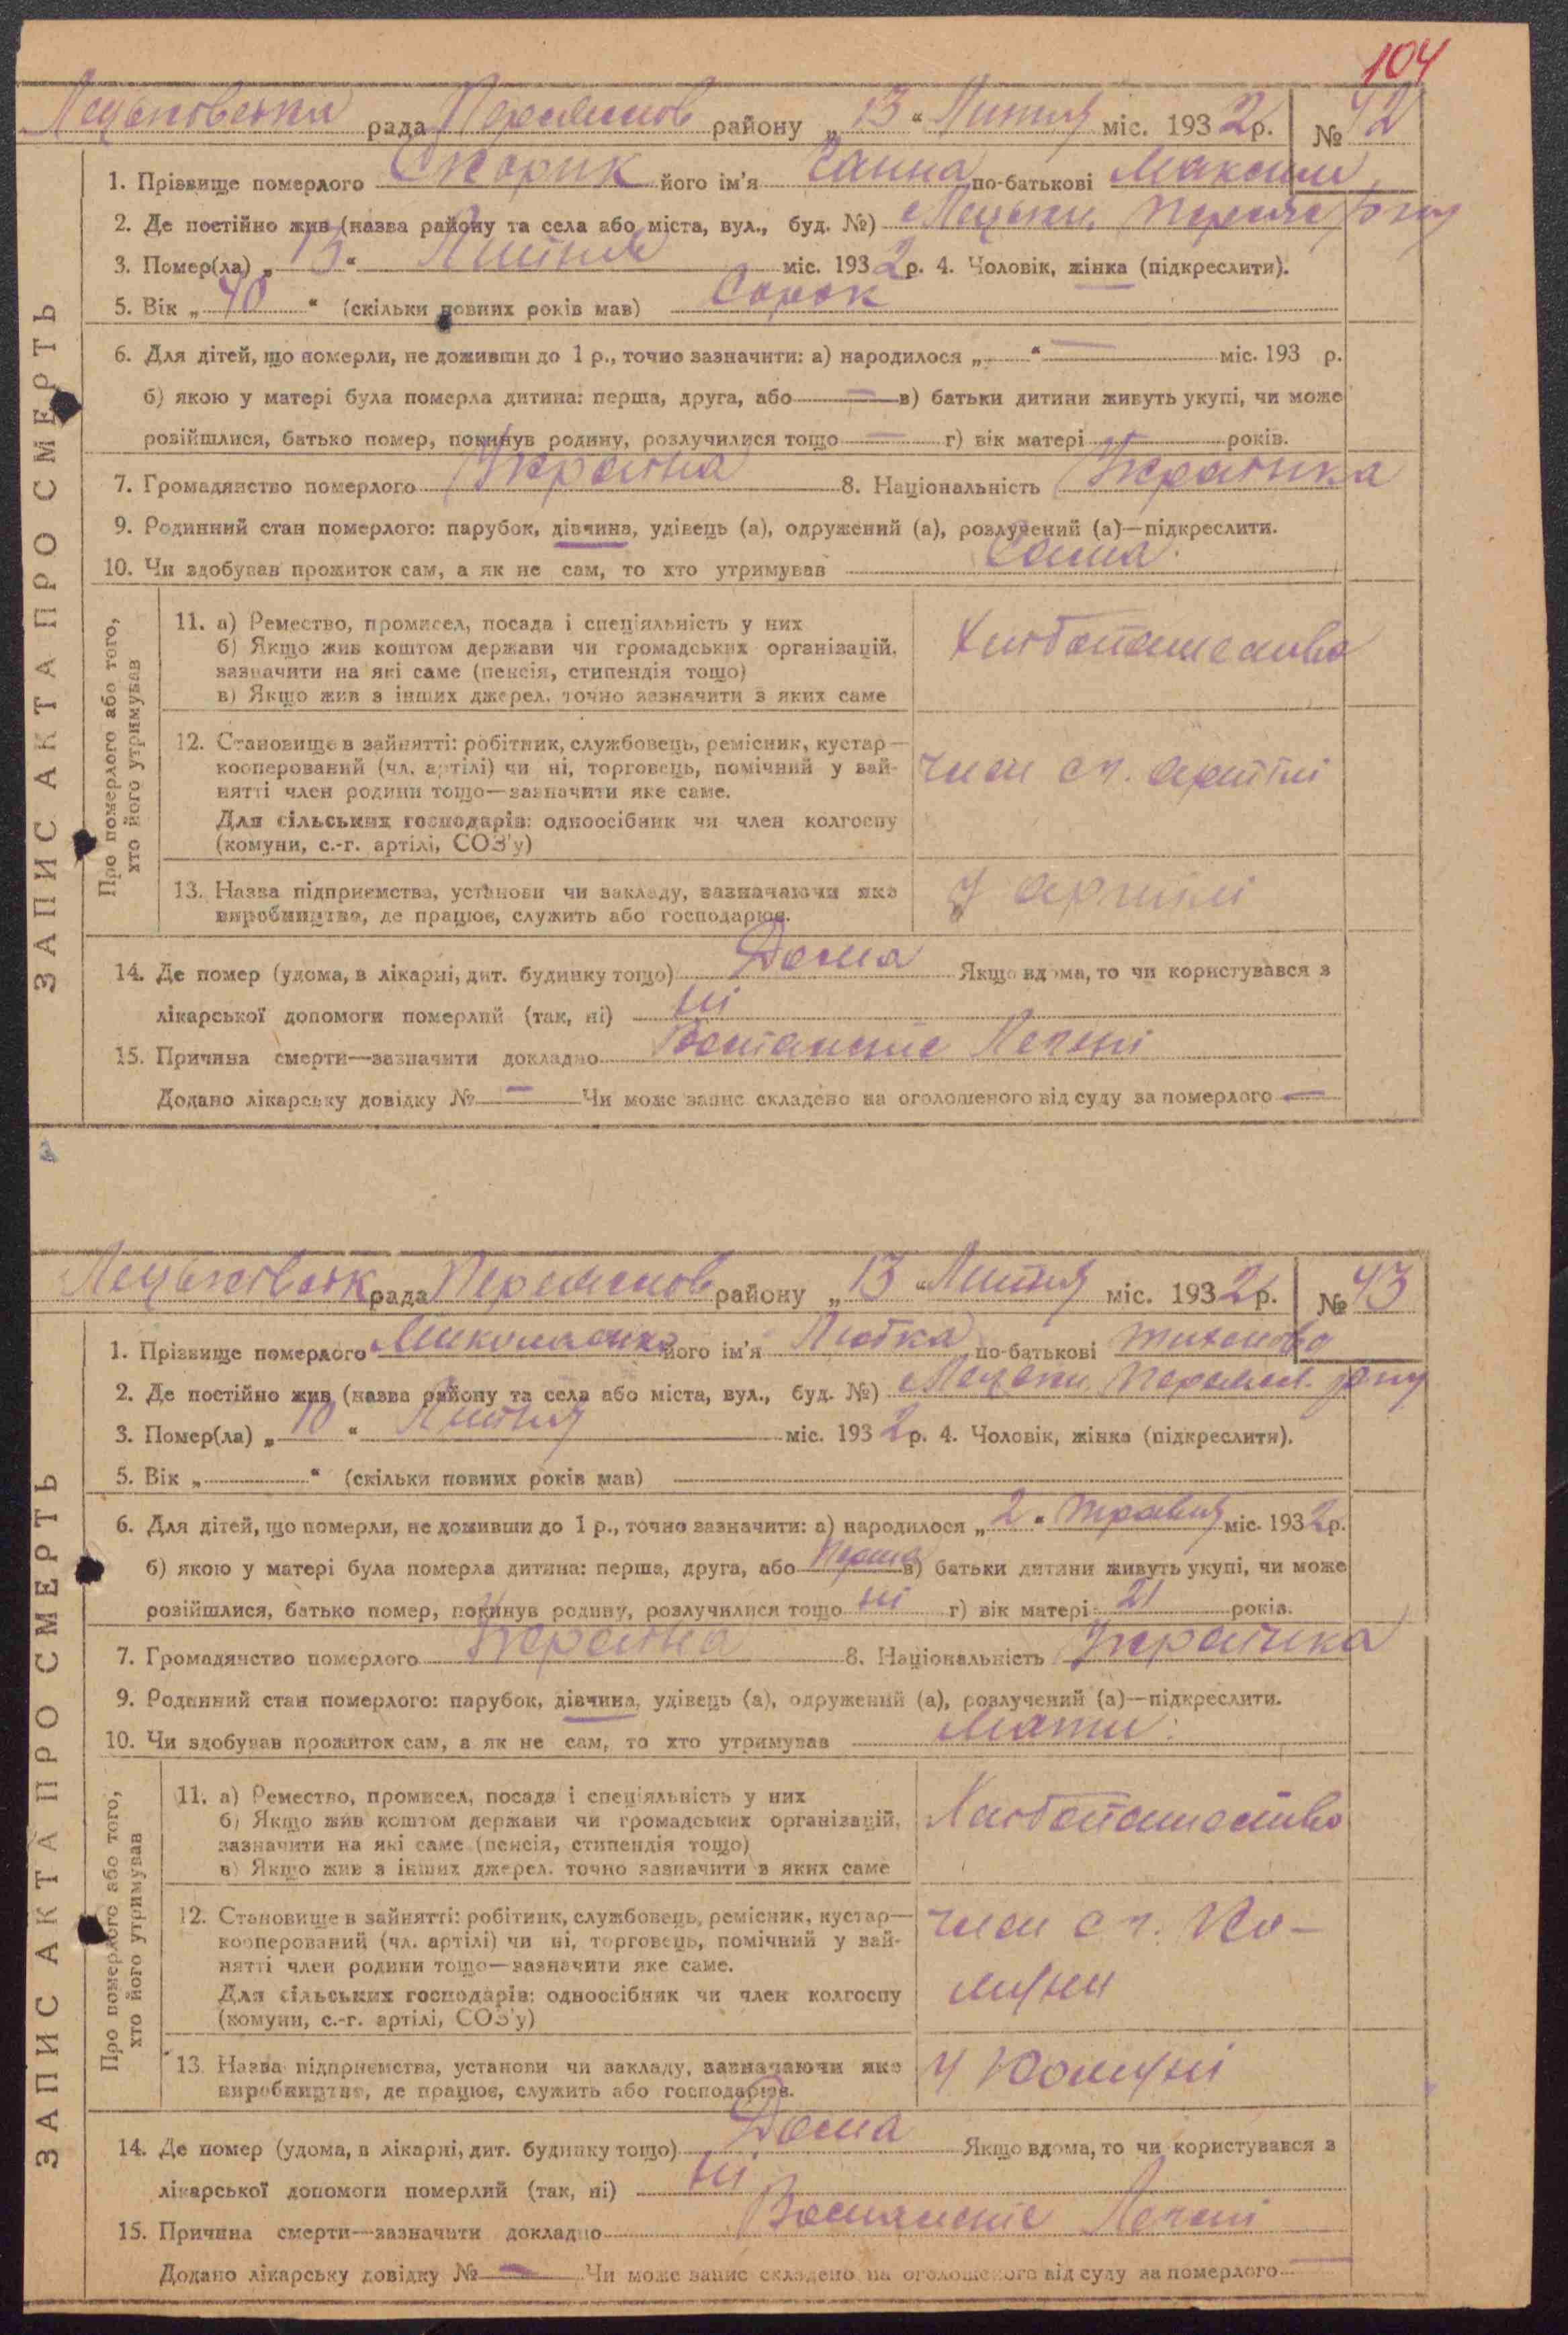 104
рада району „13“ Липня міс. 1932 р. № 42
1. Прізвище померлого Скорик його ім'я Ганна по-батькові Максим
2. Де постійно жив (назва району та села або міста, вул., буд. №)
3. Помер(ла) „13“ Липня міс. 1932 р. 4. Чоловік, жінка (підкреслити).
5. Вік „40“ (скільки повних років мав) Сорок
6. Для дітей, що померли, не доживши до 1 р., точно зазначити: а) народилося „—“ — міс. 193 р.
б) якою у матері була померла дитина: перша, друга, або — в) батьки дитини живуть укупі, чи може
розійшлися, батько помер, покинув родину, розлучилися тощо — г) вік матері років.
7. Громадянство померлого Україна 8. Національність Українка
9. Родинний стан померлого: парубок, дівчина, удівець (а), одружений (а), розлучений (а)—підкреслити.
10. Чи здобував прожиток сам, а як не сам, то хто утримував Сама
ЗАПИС АКТА ПРО СМЕРТЬ
Про померлого або того,
хто його утримував
11. а) Ремество, промисел, посада і спеціяльність у них
б) Якщо жив коштом держави чи громадських організацій,
зазначити на які саме (пенсія, стипендія тощо)
в) Якщо жив з інших джерел, точно зазначити з яких саме
12. Становище в зайнятті: робітник, службовець, ремісник, кустар—
кооперований (чл. артілі) чи ні, торговець, помічний у зай-
нятті член родини тощо—зазначити яке саме.
Для сільських господарів: одноосібник чи член колгоспу
(комуни, с.-г. артілі, СОЗ'у)
член с.г. артілі
13. Назва підприємства, установи чи закладу, зазначаючи яке
виробництво, де працює, служить або господарює.
У артілі
14. Де помер (удома, в лікарні, дит. будинку тощо) Дома Якщо вдома, то чи користувався з
лікарської допомоги померлий (так, ні) ні
15. Причина смерти—зазначити докладно
Додано лікарську довідку № — Чи може запис складено на оголошеного від суду за померлого —
рада району „13“ Липня міс. 1932 р. № 43
1. Прізвище померлого Миколаєнко його ім'я по-батькові
2. Де постійно жив (назва району та села або міста, вул., буд. №)
3. Помер(ла) „10“ Липня міс. 1932 р. 4. Чоловік, жінка (підкреслити).
5. Вік „ “ (скільки повних років мав)
6. Для дітей, що померли, не доживши до 1 р., точно зазначити: а) народилося „2“ травня міс. 1932 р.
б) якою у матері була померла дитина: перша, друга, або перша в) батьки дитини живуть укупі, чи може
розійшлися, батько помер, покинув родину, розлучилися тощо ні г) вік матері 21 років.
7. Громадянство померлого Україна 8. Національність Українка
9. Родинний стан померлого: парубок, дівчина, удівець (а), одружений (а), розлучений (а)—підкреслити.
10. Чи здобував прожиток сам, а як не сам, то хто утримував Мати
ЗАПИС АКТА ПРО СМЕРТЬ
Про померлого або того,
хто його утримував
11. а) Ремество, промисел, посада і спеціяльність у них
б) Якщо жив коштом держави чи громадських організацій,
зазначити на які саме (пенсія, стипендія тощо)
в) Якщо жив з інших джерел, точно зазначити з яких саме
12. Становище в зайнятті: робітник, службовець, ремісник, кустар—
кооперований (чл. артілі) чи ні, торговець, помічний у зай-
нятті член родини тощо—зазначити яке саме.
Для сільських господарів: одноосібник чи член колгоспу
(комуни, с.-г. артілі, СОЗ'у)
член с г. Ко-
муни
13. Назва підприємства, установи чи закладу, зазначаючи яке
виробництво, де працює, служить або господарює.
У Комуні
14. Де помер (удома, в лікарні, дит. будинку тощо) Дома Якщо вдома, то чи користувався з
лікарської допомоги померлий (так, ні) ні
15. Причина смерти—зазначити докладно
Додано лікарську довідку № — Чи може запис складено на оголошеного від суду за померлого —